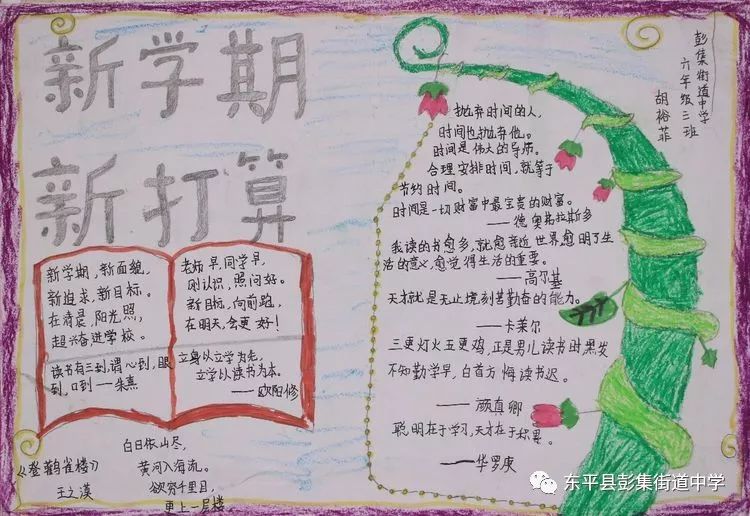 新学期
新打算
新学期，新面貌，
新追求，新目标。
在清晨，阳光照，
超兴奋进学校。
读书有三到，谓心到，眼
到，口到——朱熹
老师早，同学早，
刚认识，照问好。
新目标，向前跑，
在明天，会更好！
立身以立学为先，
立学以读书为本。
——欧阳修
《登鹳雀楼》
王之涣
白日依山尽，
黄河入海流。
欲穷千里目，
更上一层楼
抛弃时间的人，
时间也抛弃他。
时间是伟大的导师。
合理安排时间，就等于
节约时间。
时间是一切财富中最宝贵的财富。
——德奥弗拉斯多
我读的书愈多，就愈亲近世界愈明了生
活的意义，愈觉得生活的重要。
——高尔基
天才就是无止境刻苦勤奋的能力。
——卡莱尔
三更灯火五更鸡，正是男儿读书时黑发
不知勤学早，白首方悔读书迟。
——颜真卿
聪明在于学习，天才在于积累。
——华罗庚
彭集街道中学
六年级三班
胡裕菲
东平县彭集街道中学